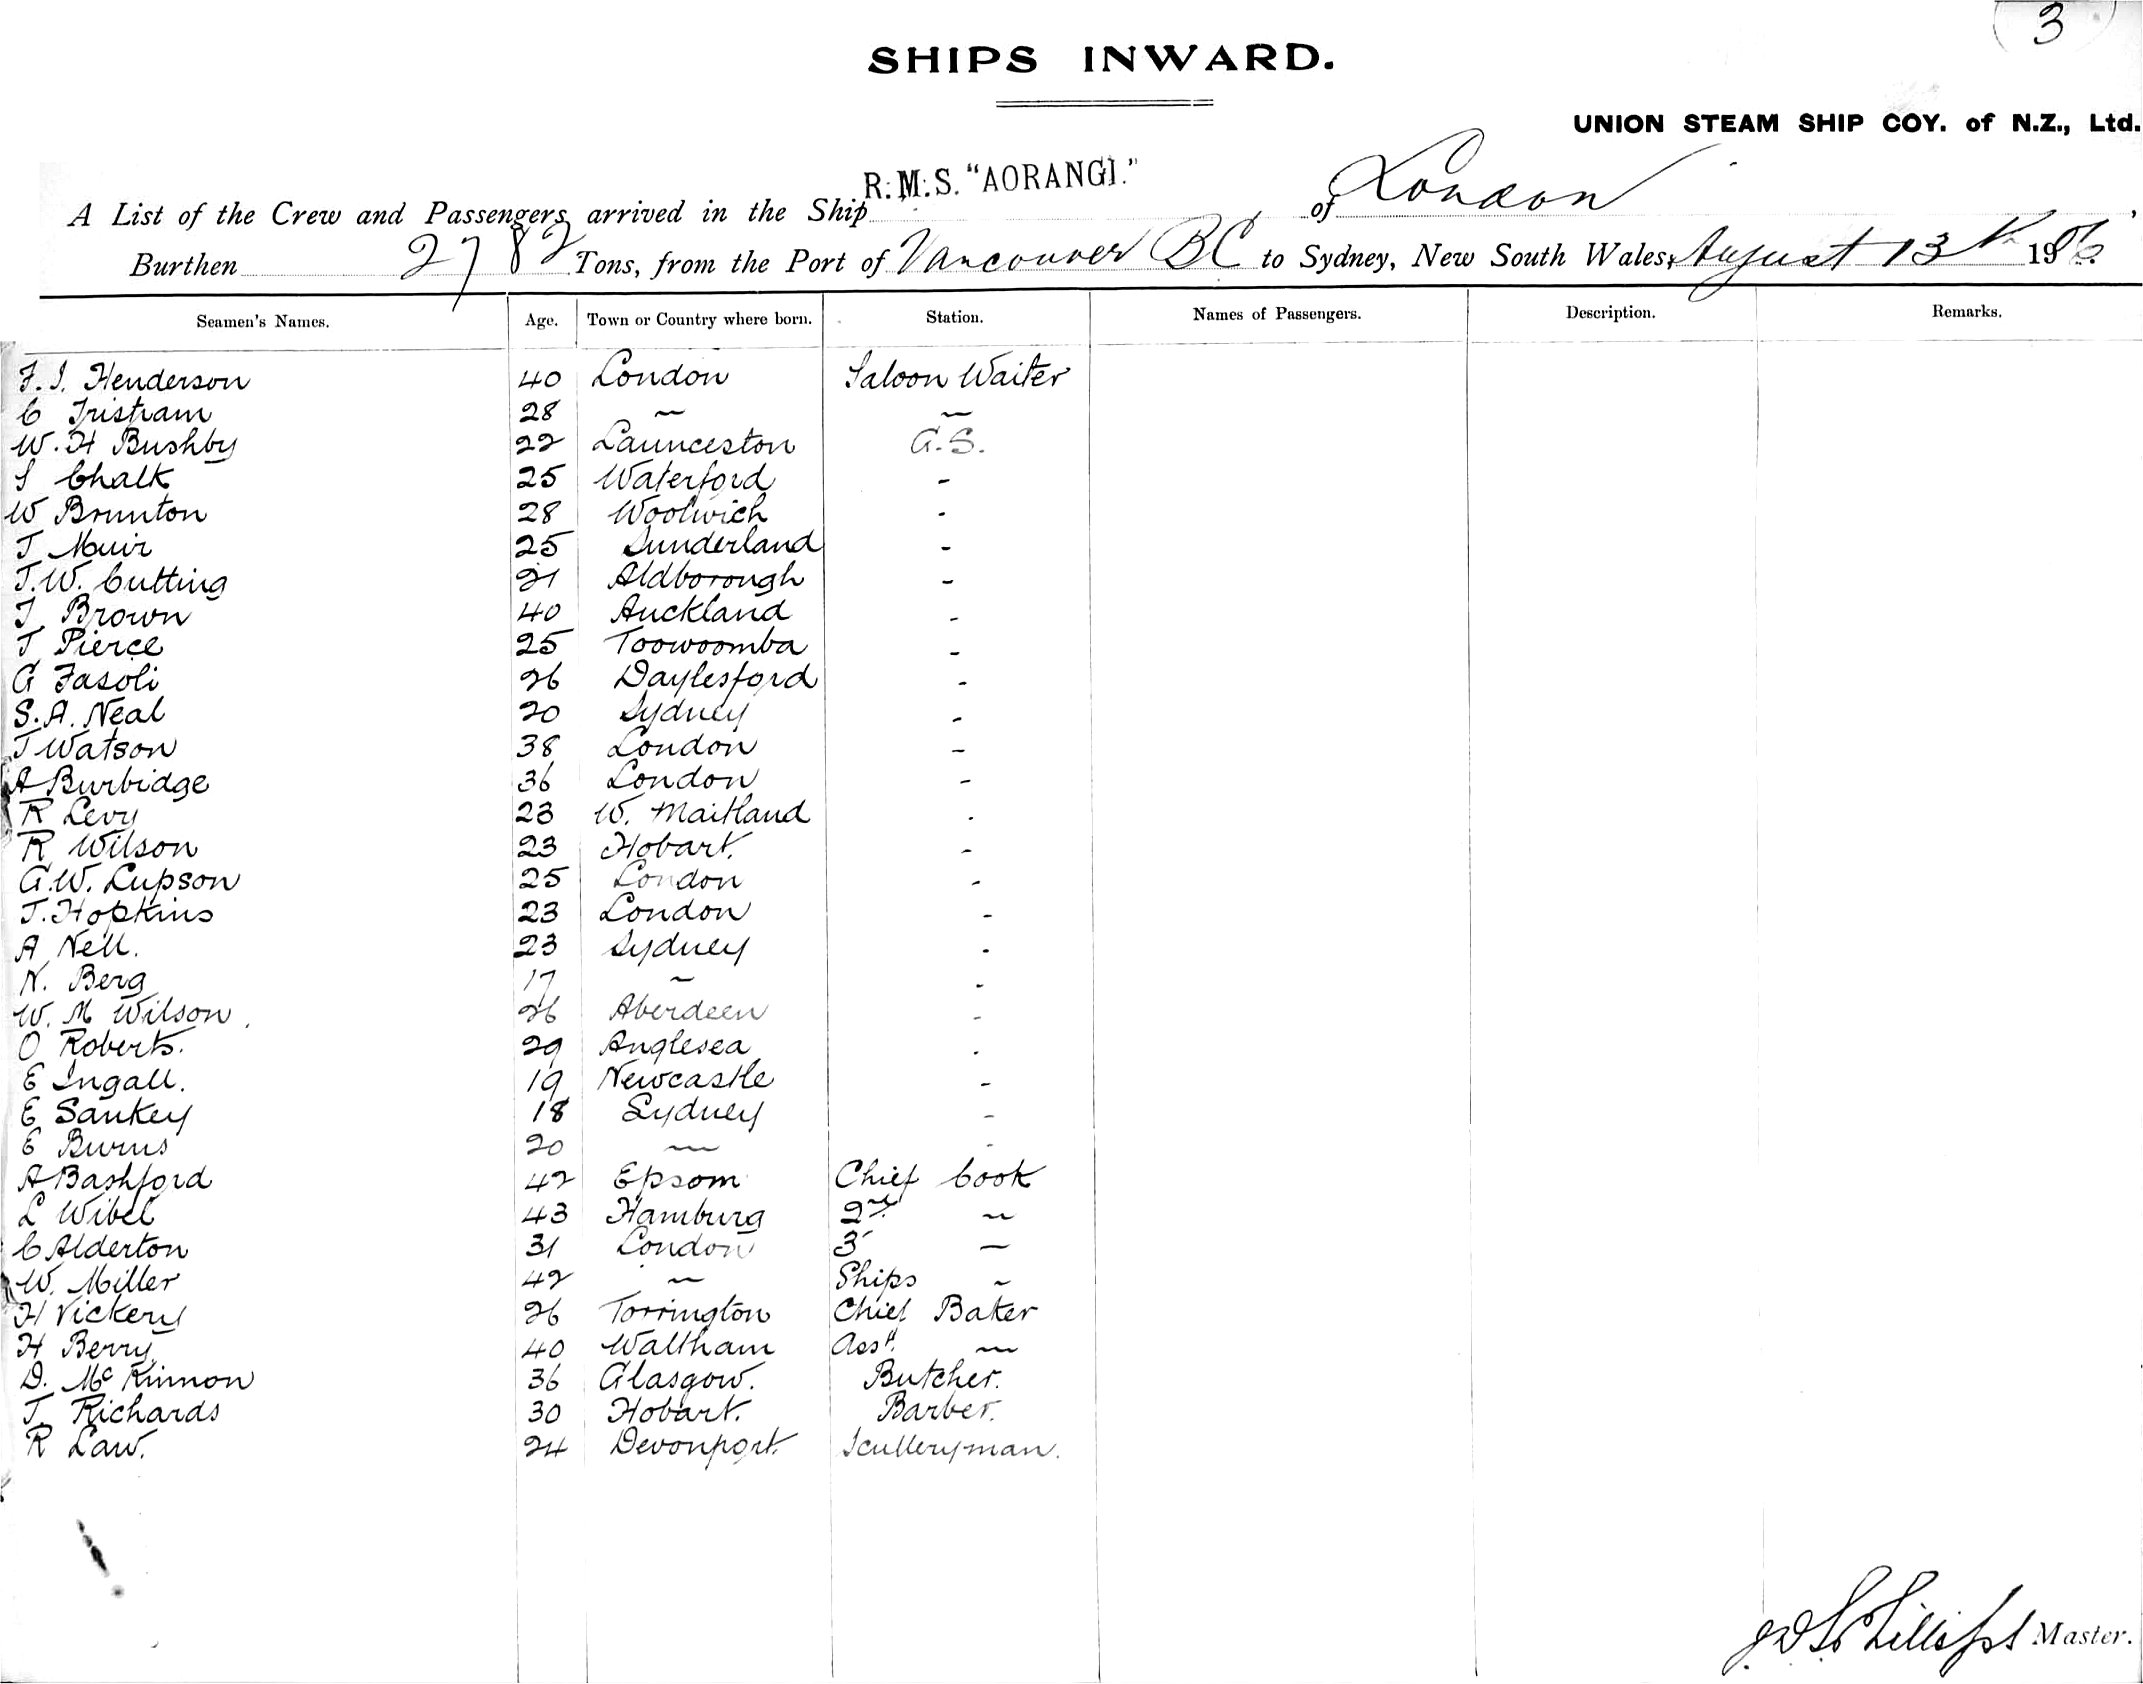 3
SHIPS INWARD.
UNION STEAM SHIP COY. of N.Z., Ltd.
A List of the Crew and Passengers arrived in the Ship R.M.S. "AORANGI." of London,
Burthen 2782 Tons, from the Port of Vancouver BC to Sydney, New South Wales, August 13th 1906.
Seamen's Names. Age. Town or Country where born. Station. Names of Passengers. Description. Remarks.
F. I. Henderson 40 London Saloon Waiter
C Tristram 28 ~ ~
W. H Bushby 22 Launceston G.S.
S Chalk 25 Waterford -
W Brunton 28 Woolwich -
J Muir 25 Sunderland -
J.W. Cutting 21 Aldborough -
J Brown 40 Auckland -
J Pierce 25 Toowoomba -
G Fasoli 26 Daylesford -
S. A. Neal 20 Sydney -
J Watson 38 London -
A Burbidge 36 London -
R Levy 23 W. Maitland -
R Wilson 23 Hobart. -
G.W. Lupson 25 London -
J. Hopkins 23 London -
A Nell. 23 Sydney -
N. Berg 17 ~ -
W. M Wilson 26 Aberdeen -
O Roberts. 29 Anglesea -
E Ingall. 19 Newcastle -
E Sankey 18 Sydney -
E Burns 20 ~ -
A Bashford 42 Epsom Chief Cook
L Wibel 43 Hamburg 2nd ~
C Alderton 31 London 3 ~
W. Miller 42 ~ Ships ~
H Vickery 26 Torrington Chief Baker
H Berry 40 Waltham Asst. ~
D. McKinnon 36 Glasgow. Butcher.
J. Richards 30 Hobart. Barber.
R Law. 24 Devonport. Sculleryman.
J D S Phillips Master.